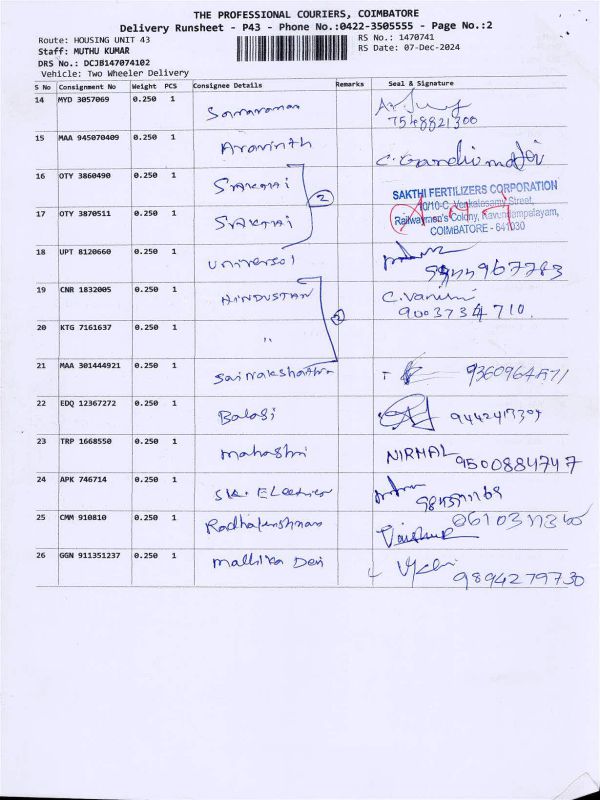 THE PROFESSIONAL COURIERS, COIMBATORE
Delivery Runsheet - P43 - Phone No.:0422-3505555 - Page No.:2
Route: HOUSING UNIT 43
RS No.: 1470741
Staff: MUTHU KUMAR
RS Date: 07-Dec-2024
DRS No.: DCJB147074102
Vehicle: Two Wheeler Delivery
S No Consignment No Weight PCS Consignee Details Remarks Seal & Signature
14 MYD 3057069 0.250 1
7548821300
15 MAA 945070409 0.250 1 Aravinth
16 OTY 3860490 0.250 1 SAKTHI
2
SAKTHI FERTILIZERS CORPORATION
10/10-C, Venkatasamy Street,
17 OTY 3870511 0.250 1 SAKTHI Railwaymen's Colony, Kavundampalayam,
COIMBATORE - 641030
18 UPT 8120660 0.250 1 Universal
9944967783
19 CNR 1832005 0.250 1 HINDUSTAN C.Varuni
9003734710.
20 KTG 7161637 0.250 1 "
2
21 MAA 301444921 0.250 1
22 EDQ 12367272 0.250 1 Balaji
23 TRP 1668550 0.250 1 Mahashri NIRMAL 9500884747
24 APK 746714 0.250 1 S.K. Electrical
25 CMM 910810 0.250 1 Radhakrishnan
26 GGN 911351237 0.250 1 Mallika Devi
9894279730